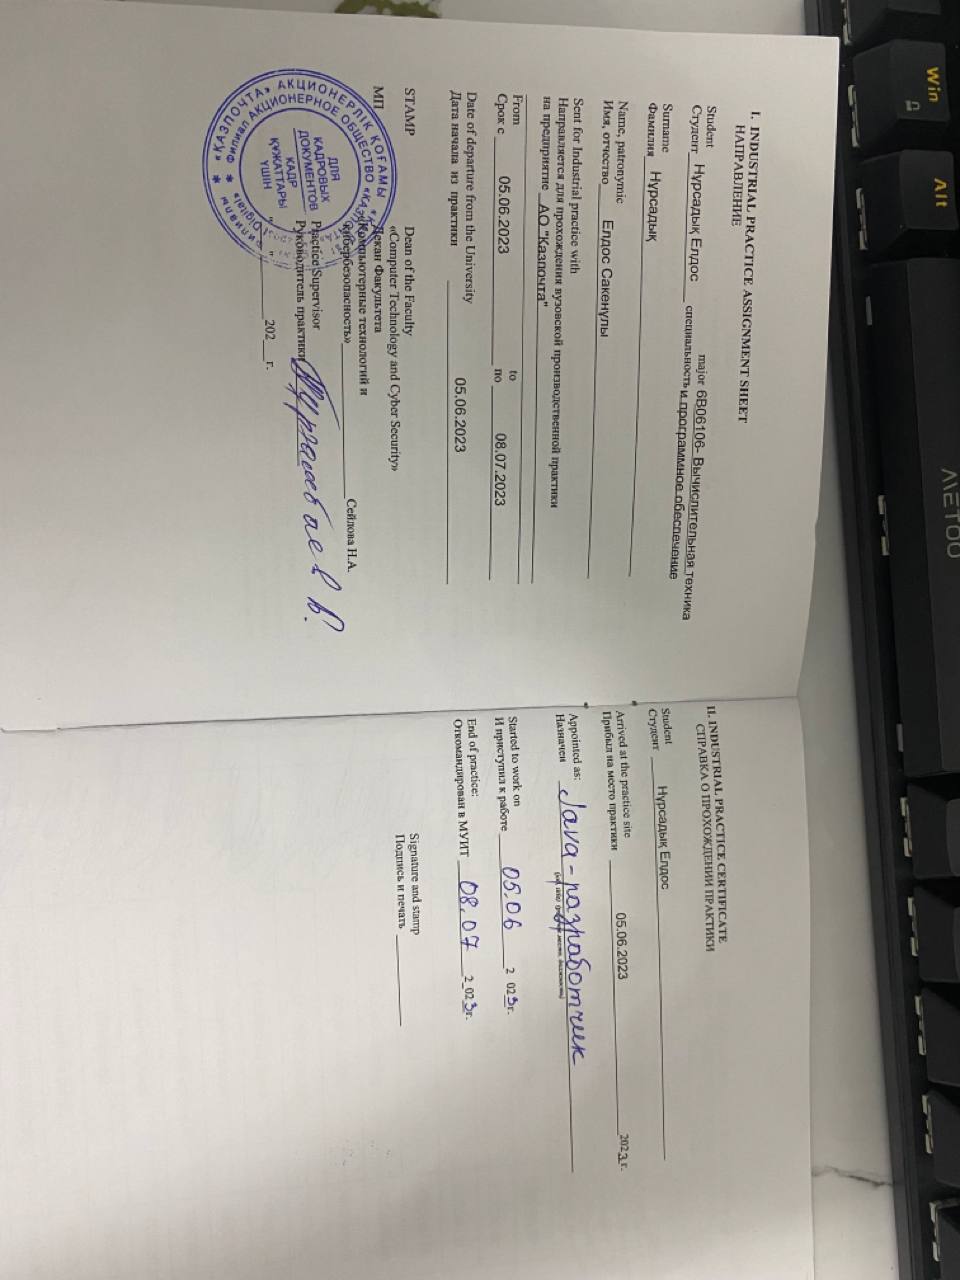 I. INDUSTRIAL PRACTICE ASSIGNMENT SHEET
НАПРАВЛЕНИЕ
Student major 6B06106- Вычислительная техника
Студент Нұрсадық Елдос специальность и программное обеспечение
Surname
Фамилия Нұрсадық
Name, patronymic
Имя, отчество Елдос Сакенұлы
Sent for Industrial practice with
Направляется для прохождения вузовской производственной практики
на предприятие АО "Казпочта"
From to
Срок с 05.06.2023 по 08.07.2023
Date of departure from the University
Дата начала из практики 05.06.2023
STAMP Dean of the Faculty
«Computer Technology and Cyber Security»
МП Декан Факультета
«Компьютерные технологий и
кибербезопасность» Сейлова Н.А.
Practice Supervisor
Руководитель практики
" " 202 г.
«ҚАЗПОЧТА» АКЦИОНЕРЛІК ҚОҒАМЫ
Филиал АКЦИОНЕРНОЕ ОБЩЕСТВО
ДЛЯ
КАДРОВЫХ
ДОКУМЕНТОВ
КАДР
ҚҰЖАТТАРЫ
ҮШІН
II. INDUSTRIAL PRACTICE CERTIFICATE
СПРАВКА О ПРОХОЖДЕНИИ ПРАКТИКИ
Student
Студент Нұрсадық Елдос
Arrived at the practice site
Прибыл на место практики 05.06.2023 2023 г.
Appointed as:
Назначен Java-разработчик
Started to work on
И приступил к работе 05.06 2 023 г.
End of practice:
Откомандирован в МУИТ 08.07 2 023 г.
Signature and stamp
Подпись и печать
Win
Alt